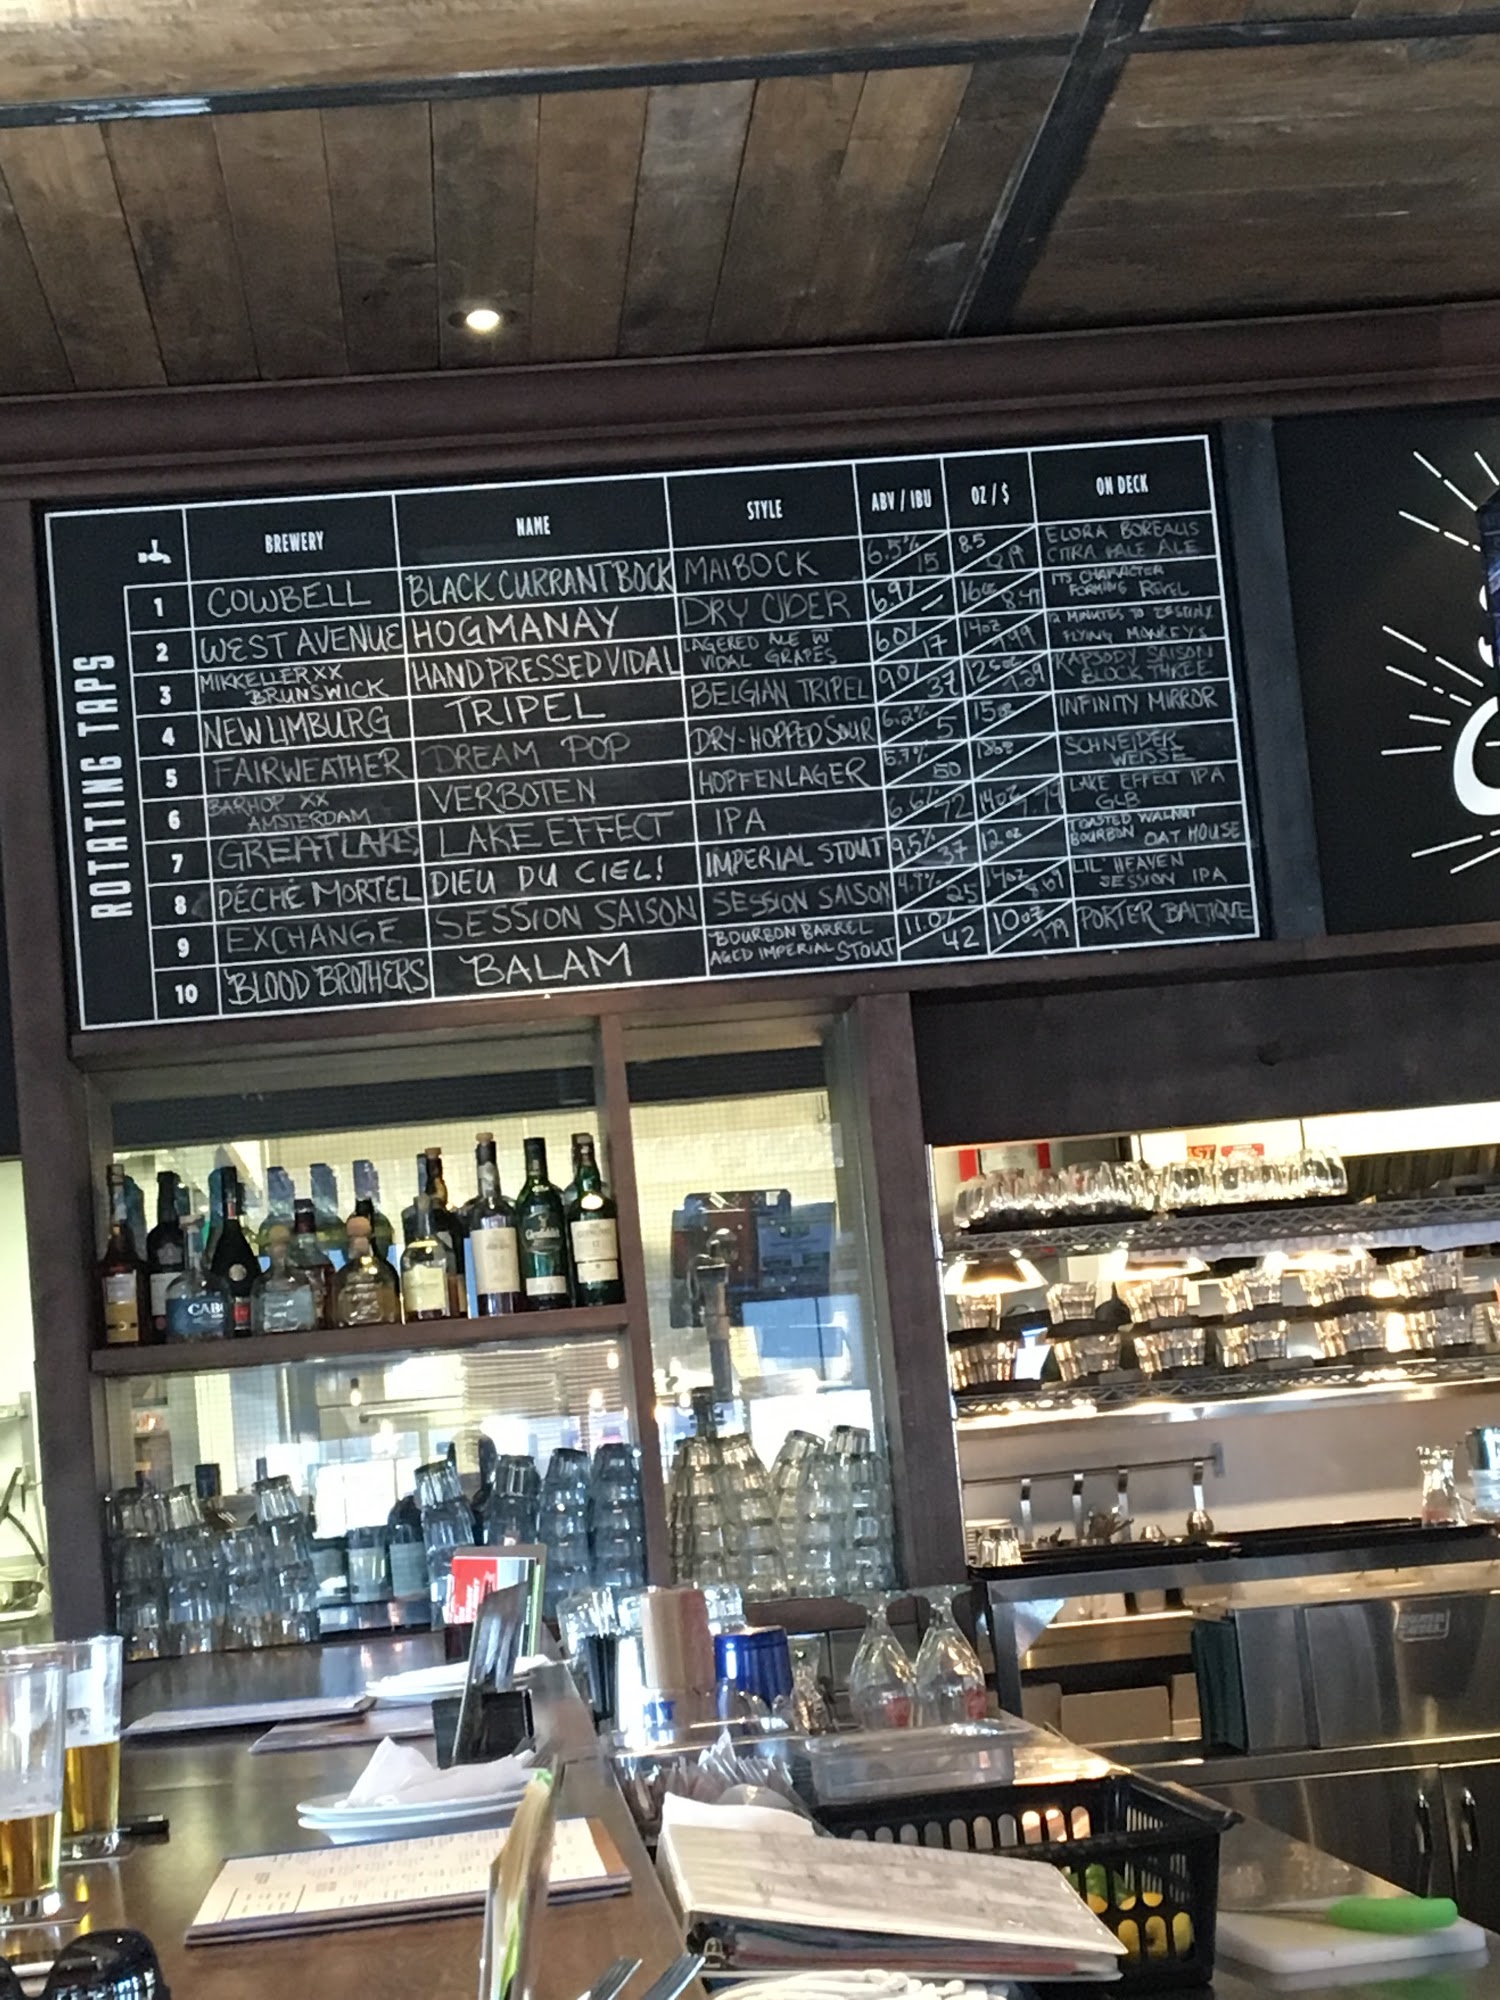 ROTATING TAPS
BREWERY NAME STYLE ABV / IBU OZ / $ ON DECK
1 COWBELL BLACK CURRANT BOCK MAIBOCK 6.5% 15 8.5 ELORA BOREALIS
CITRA PALE ALE
2 WEST AVENUE HOGMANAY DRY CIDER 6.9% - 16oz ITS CHARACTER
FORMING REVEL
3 MIKKELLER XX HAND PRESSED VIDAL LAGERED ALE W 6.0% 17 14oz 7.99 12 MINUTES TO DESTINY
BRUNSWICK VIDAL GRAPES FLYING MONKEYS
4 NEW LIMBURG TRIPEL BELGIAN TRIPEL 9.0% 37 12.5oz RAPSODY SAISON
BLOCK THREE
5 FAIRWEATHER DREAM POP DRY-HOPPED SOUR 6.2% 5 15oz INFINITY MIRROR
6 BARHOP XX VERBOTEN HOPFENLAGER 5.7% 50 SCHNEIDER
AMSTERDAM WEISSE
7 GREAT LAKES LAKE EFFECT IPA 6.6% 72 14oz 7.79 LAKE EFFECT IPA
GLB
8 PÉCHÉ MORTEL DIEU DU CIEL! IMPERIAL STOUT 9.5% 37 12oz TOASTED WALNUT
BOURBON OAT HOUSE
9 EXCHANGE SESSION SAISON SESSION SAISON 4.9% 25 14oz LIL' HEAVEN
SESSION IPA
10 BLOOD BROTHERS BALAM BOURBON BARREL 11.0% 42 10oz PORTER BALTIQUE
AGED IMPERIAL STOUT
CABO
Glenfiddich